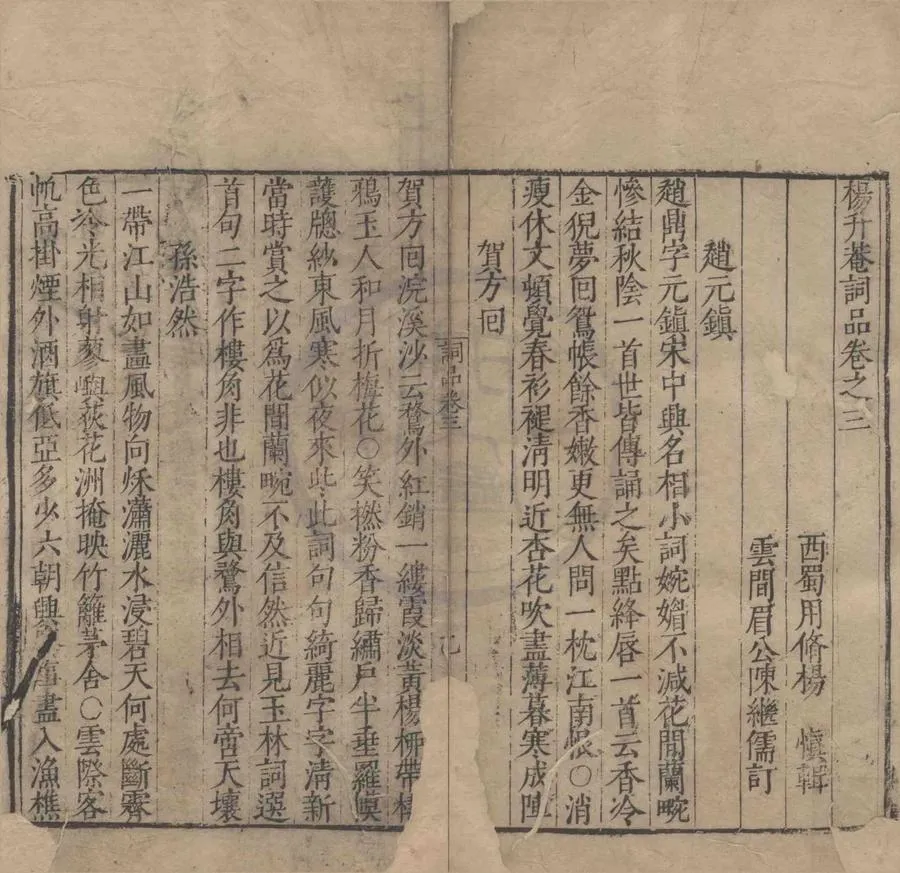 楊升菴詞品卷之三
西蜀用脩楊 慎輯
雲間眉公陳繼儒訂
趙元鎮
趙鼎字元鎮宋中興名相小詞婉媚不減花間蘭畹
慘結秋陰一首世皆傳誦之矣點絳唇一首云香冷
金猊夢回鴛帳餘香嫩更無人問一枕江南恨○消
瘦休文頓覺春衫褪清明近杏花吹盡薄暮寒成陣
賀方回
詞品卷三
賀方回浣溪沙云鶩外紅銷一縷霞淡黃楊柳帶棲
鴉玉人和月折梅花○笑撚粉香歸繡戶半垂羅幙
護牕紗東風寒似夜來些此詞句句綺麗字字清新
當時賞之以爲花間蘭畹不及信然近見玉林詞選
首句二字作樓角非也樓角與鶩外相去何啻天壤
孫浩然
一帶江山如畫風物向秌瀟灑水浸碧天何處斷霽
色冷光相射蓼嶼荻花洲掩映竹籬茅舍○雲際客
帆高掛煙外酒旗低亞多少六朝興事盡入漁樵